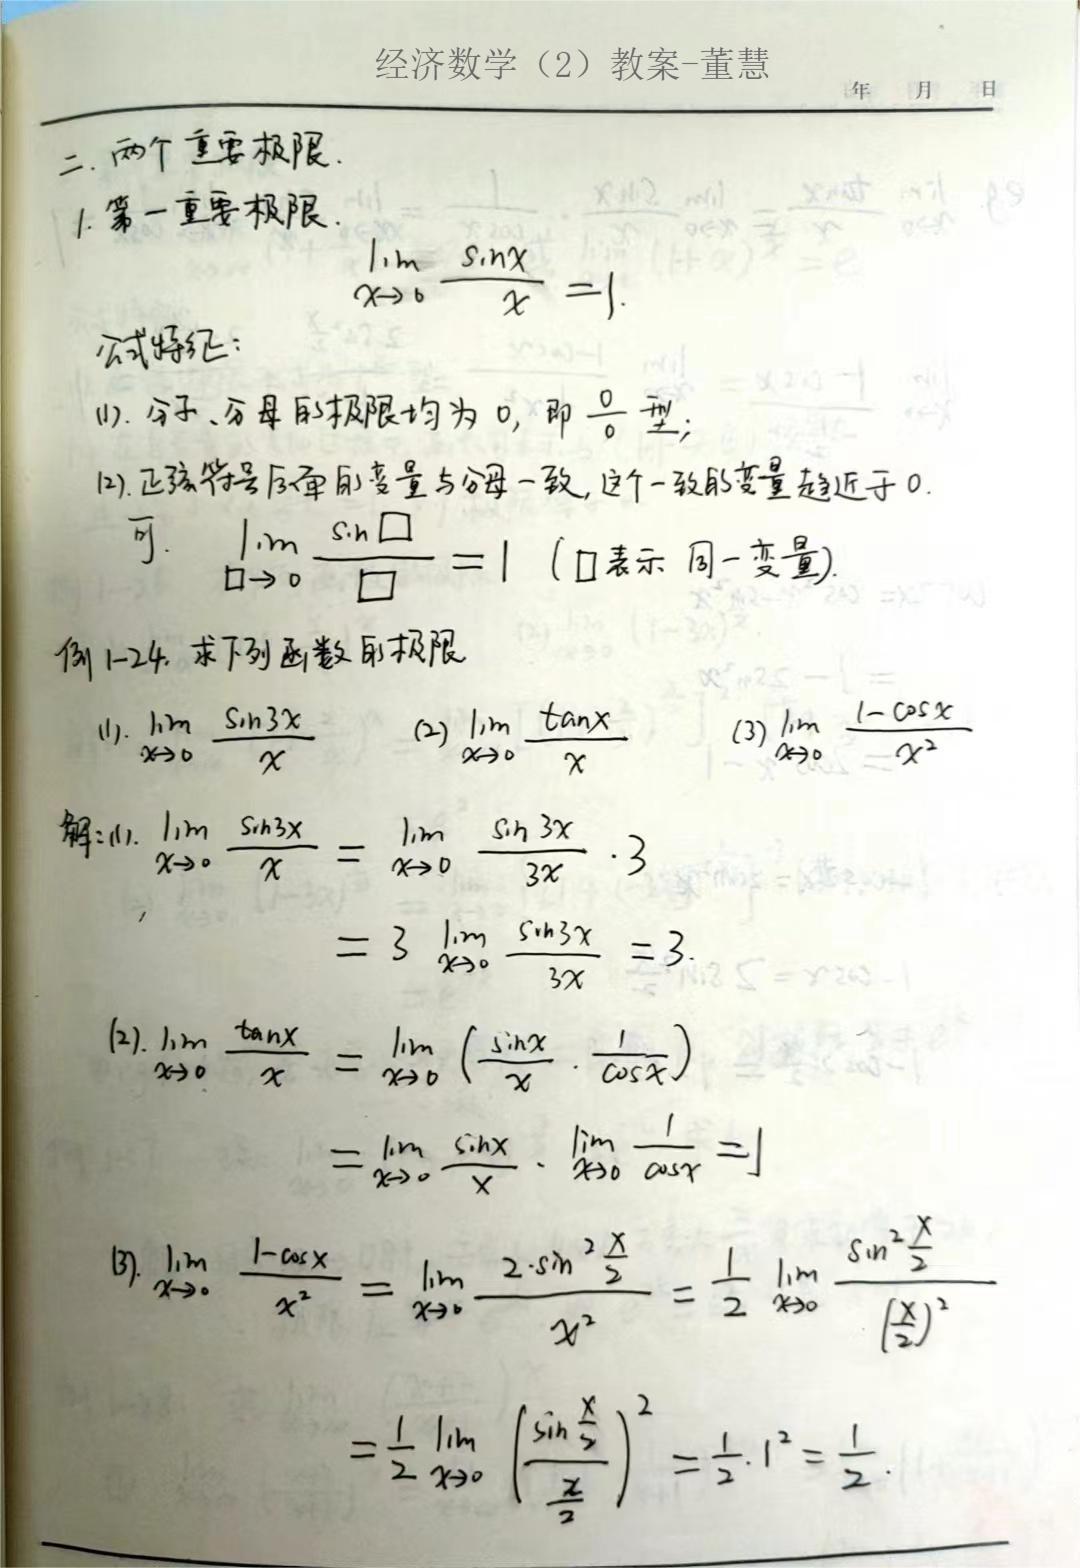 经济数学（2）教案-董慧
年 月 日
二. 两个重要极限.
1. 第一重要极限.
lim_{x→0} sinx/x = 1.
公式特征:
(1). 分子、分母的极限均为0, 即 0/0 型;
(2). 正弦符号后面的变量与分母一致, 这个一致的变量趋近于0.
可. lim_{□→0} sin□/□ = 1 (□表示 同一变量).
例1-24. 求下列函数的极限
(1). lim_{x→0} sin3x/x (2) lim_{x→0} tanx/x (3) lim_{x→0} (1-cosx)/x²
解:(1). lim_{x→0} sin3x/x = lim_{x→0} sin3x/3x · 3
= 3 lim_{x→0} sin3x/3x = 3.
(2). lim_{x→0} tanx/x = lim_{x→0} (sinx/x · 1/cosx)
= lim_{x→0} sinx/x · lim_{x→0} 1/cosx = 1
(3). lim_{x→0} (1-cosx)/x² = lim_{x→0} (2·sin² x/2)/x² = 1/2 lim_{x→0} (sin² x/2)/(x/2)²
= 1/2 lim_{x→0} ((sin x/2)/(x/2))² = 1/2 · 1² = 1/2.